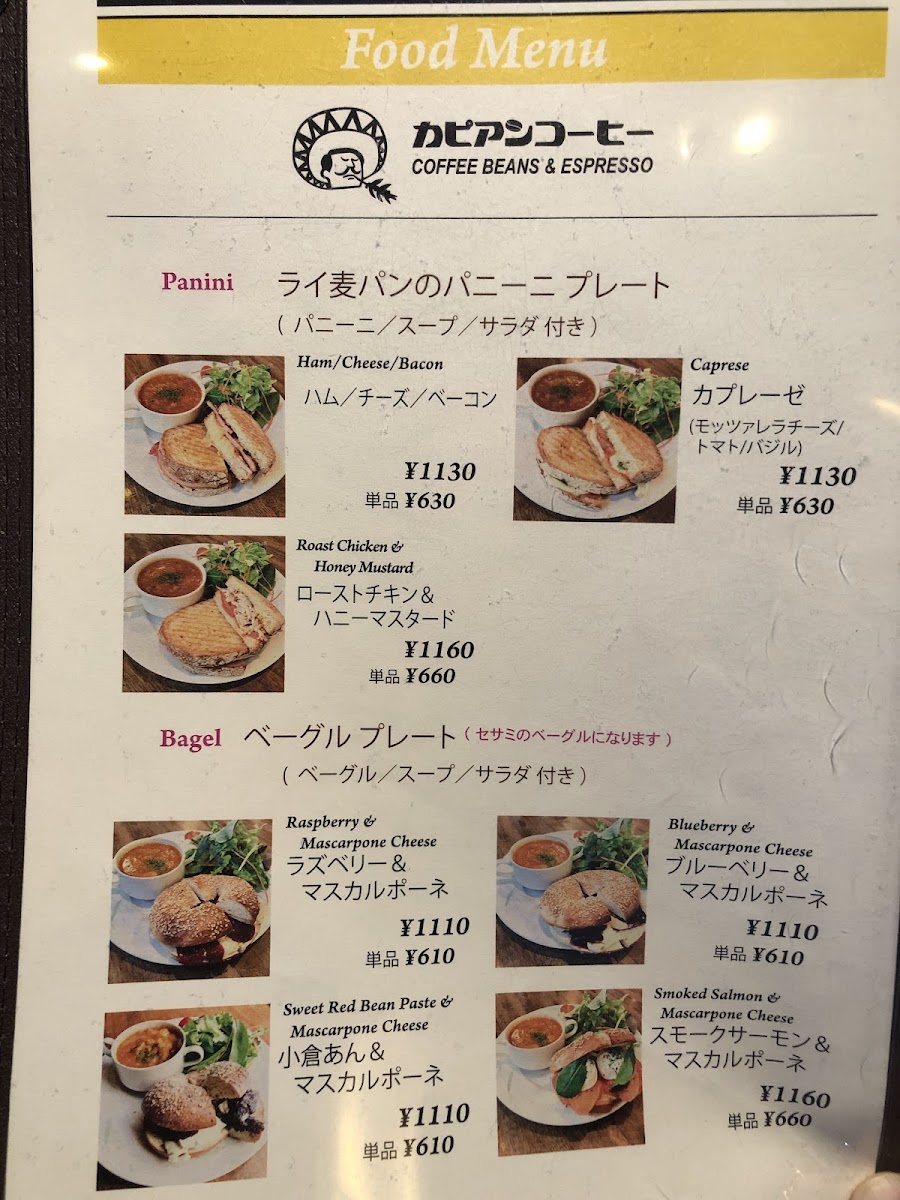 Food Menu
カピアンコーヒー
COFFEE BEANS & ESPRESSO
Panini ライ麦パンのパニーニ プレート
( パニーニ／スープ／サラダ 付き )
Ham/Cheese/Bacon
ハム／チーズ／ベーコン
¥1130
単品 ¥630
Caprese
カプレーゼ
(モッツァレラチーズ/
トマト/バジル)
¥1130
単品 ¥630
Roast Chicken &
Honey Mustard
ローストチキン＆
ハニーマスタード
¥1160
単品 ¥660
Bagel ベーグル プレート ( セサミのベーグルになります )
( ベーグル／スープ／サラダ 付き )
Raspberry &
Mascarpone Cheese
ラズベリー＆
マスカルポーネ
¥1110
単品 ¥610
Blueberry &
Mascarpone Cheese
ブルーベリー＆
マスカルポーネ
¥1110
単品 ¥610
Sweet Red Bean Paste &
Mascarpone Cheese
小倉あん＆
マスカルポーネ
¥1110
単品 ¥610
Smoked Salmon &
Mascarpone Cheese
スモークサーモン＆
マスカルポーネ
¥1160
単品 ¥660